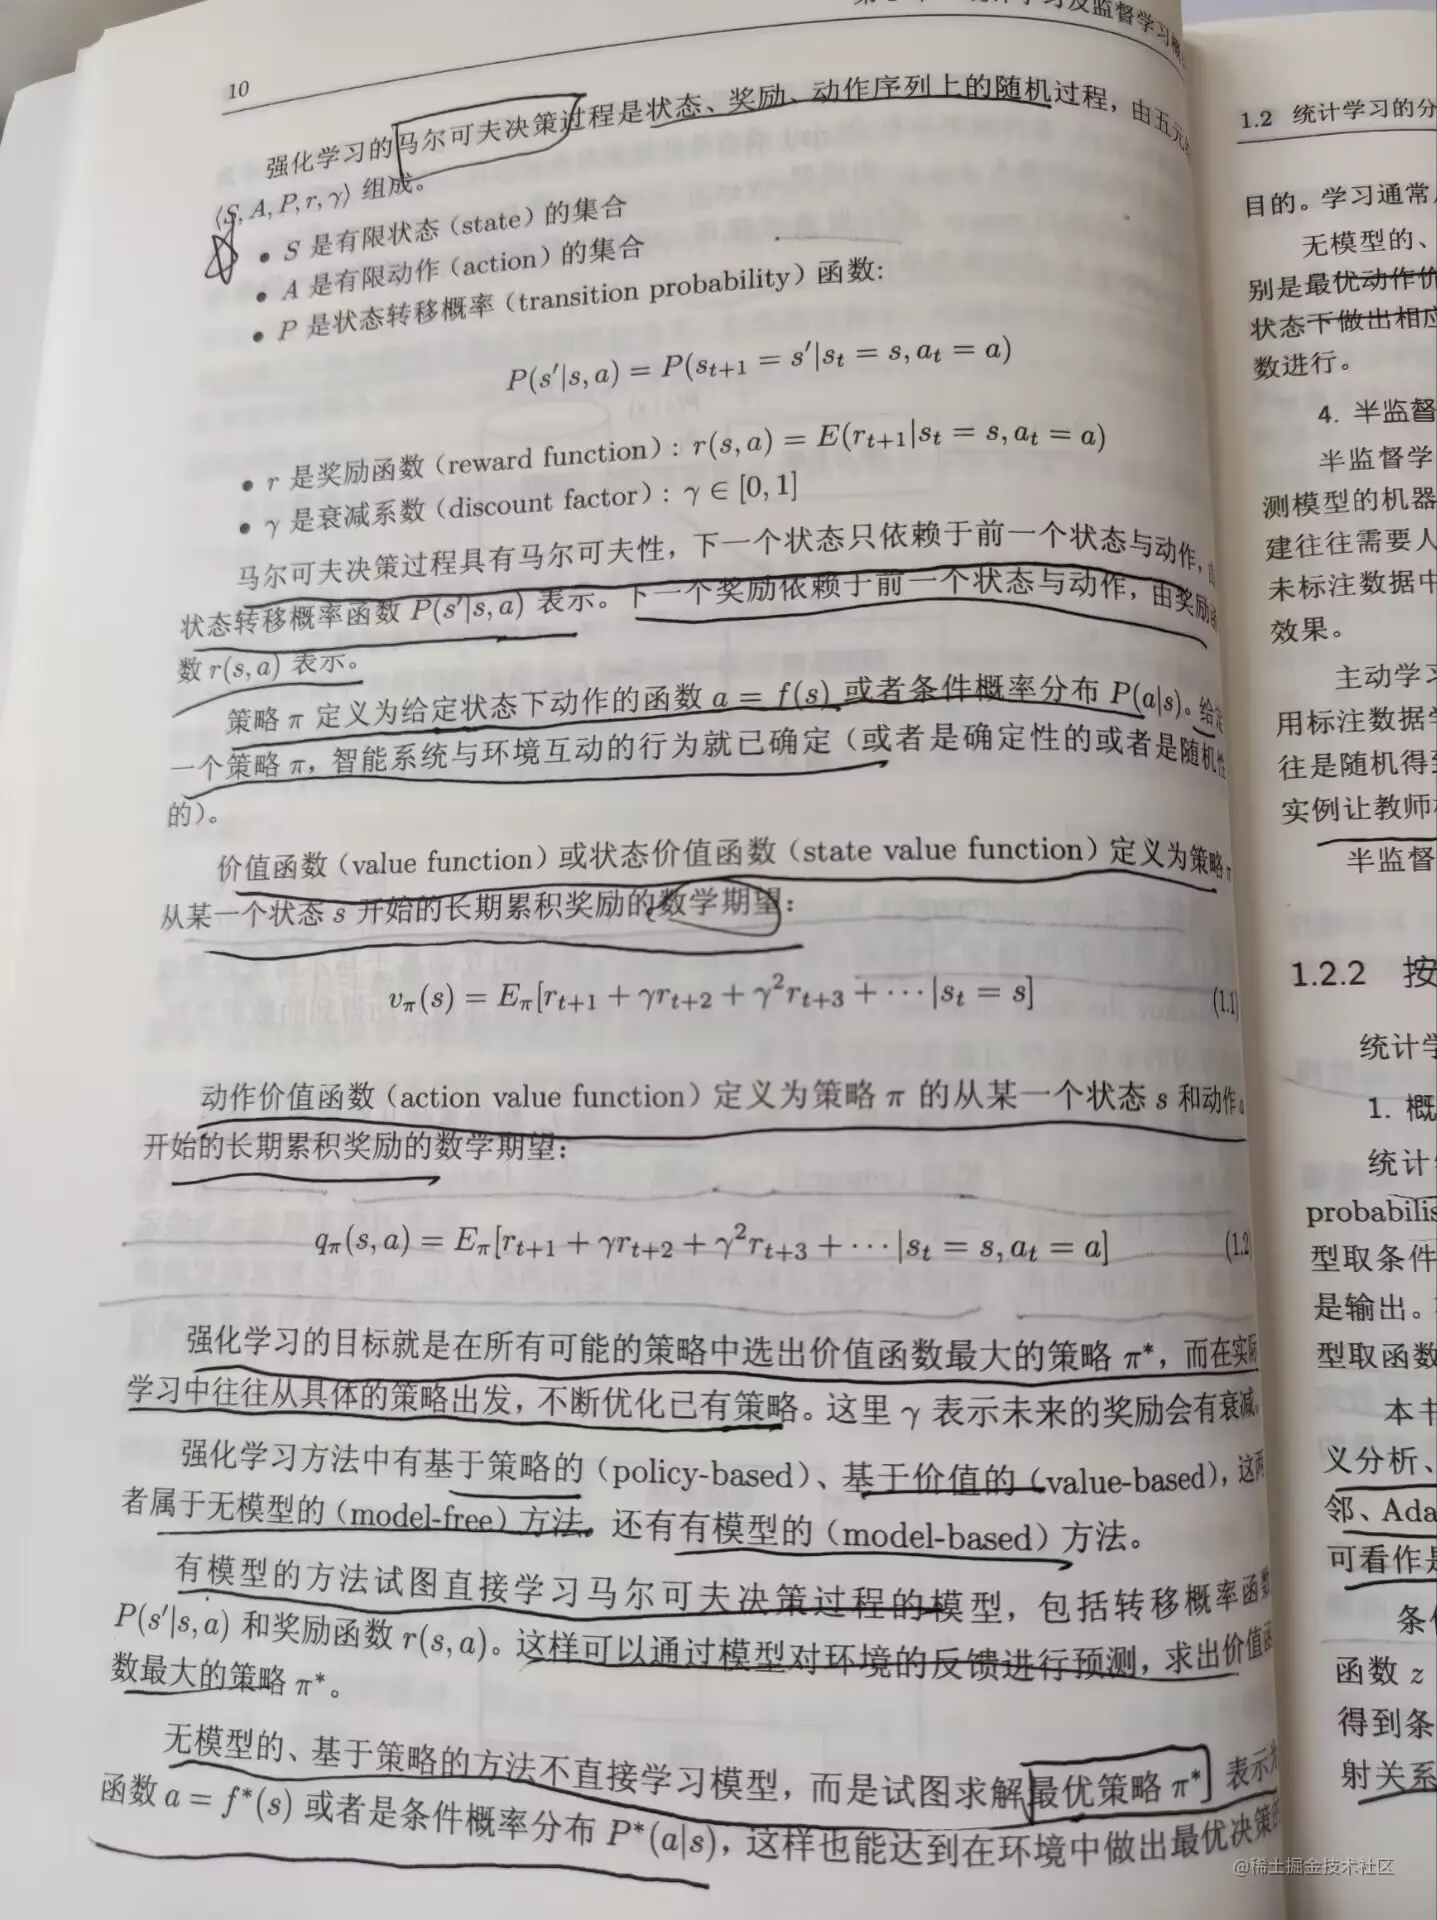 10
统计学习及监督学习
强化学习的马尔可夫决策过程是状态、奖励、动作序列上的随机过程，由五元
⟨S, A, P, r, γ⟩ 组成。
• S 是有限状态（state）的集合
• A 是有限动作（action）的集合
• P 是状态转移概率（transition probability）函数：
P(s′|s, a) = P(s_{t+1} = s′|s_t = s, a_t = a)
• r 是奖励函数（reward function）：r(s, a) = E(r_{t+1}|s_t = s, a_t = a)
• γ 是衰减系数（discount factor）：γ ∈ [0, 1]
马尔可夫决策过程具有马尔可夫性，下一个状态只依赖于前一个状态与动作，由
状态转移概率函数 P(s′|s, a) 表示。下一个奖励依赖于前一个状态与动作，由奖励函
数 r(s, a) 表示。
策略 π 定义为给定状态下动作的函数 a = f(s) 或者条件概率分布 P(a|s)。给定
一个策略 π，智能系统与环境互动的行为就已确定（或者是确定性的或者是随机性
的）。
价值函数（value function）或状态价值函数（state value function）定义为策略 π
从某一个状态 s 开始的长期累积奖励的数学期望：
v_π(s) = E_π[r_{t+1} + γr_{t+2} + γ²r_{t+3} + ⋯ |s_t = s] (1.1)
动作价值函数（action value function）定义为策略 π 的从某一个状态 s 和动作 a
开始的长期累积奖励的数学期望：
q_π(s, a) = E_π[r_{t+1} + γr_{t+2} + γ²r_{t+3} + ⋯ |s_t = s, a_t = a] (1.2
强化学习的目标就是在所有可能的策略中选出价值函数最大的策略 π*，而在实际
学习中往往从具体的策略出发，不断优化已有策略。这里 γ 表示未来的奖励会有衰减。
强化学习方法中有基于策略的（policy-based）、基于价值的（value-based），这两
者属于无模型的（model-free）方法。还有有模型的（model-based）方法。
有模型的方法试图直接学习马尔可夫决策过程的模型，包括转移概率函数
P(s′|s, a) 和奖励函数 r(s, a)。这样可以通过模型对环境的反馈进行预测，求出价值函
数最大的策略 π*。
无模型的、基于策略的方法不直接学习模型，而是试图求解最优策略 π* 表示为
函数 a = f*(s) 或者是条件概率分布 P*(a|s)，这样也能达到在环境中做出最优决策的
1.2 统计学习的分
目的。学习通常
无模型的、
别是最优动作价
状态下做出相应
数进行。
4. 半监督
半监督学
测模型的机器
建往往需要人
未标注数据中
效果。
主动学习
用标注数据学
往是随机得到
实例让教师
半监督
1.2.2 按
统计学
1. 概
统计
probabilis
型取条件
是输出。
型取函数
本书
义分析、
邻、Ada
可看作是
条件
函数 z
得到条
射关系
@稀土掘金技术社区